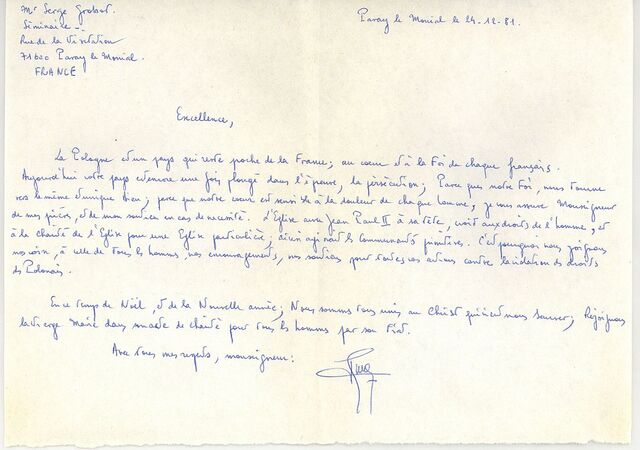 Mr Serge Grobot.
Paray le Monial le 24-12-81.
Séminaire -
Rue de la Visitation
71600 Paray le Monial.
FRANCE
Excellence,
La Pologne est un pays qui reste proche de la France; au coeur et à la Foi de chaque français.
Aujourd'hui votre pays est encore une fois plongé dans l'épreuve, la persécution; Parce que notre Foi, nous tourne
vers le même et unique Dieu; parce que notre coeur est sensible à la douleur de chaque homme, je vous assure Monseigneur
de mes prières, et de mon soutien en cas de nécessité. L'Eglise avec Jean Paul II à sa tête, croit aux droits de l'homme, et
à la charité de l'Eglise pour une Eglise particulière, ainsi agissaient les Communautés primitives. C'est pourquoi nous joignons
nos voix, à celle de tous les hommes, nos encouragements, nos soutiens pour toutes vos actions contre la violation des droits
des Polonais.
En ce temps de Noël, et de la Nouvelle année; Nous sommes tous unis au Christ qui vient nous sauver; Rejoignons
la vierge Marie dans son acte de charité pour tous les hommes par son Fiat.
Avec tous mes respects, monseigneur: